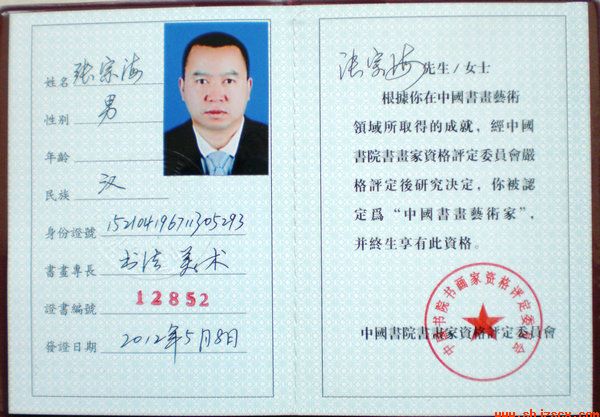 姓名 张宗海
性别 男
年龄
民族 汉
身份證號 152104196711305293
書畫專長 书法 美术
證書編號 12852
發證日期 2012年5月8日
张宗海 先生/女士
根據你在中國書畫藝術
領域所取得的成就，經中國
書院書畫家資格評定委員會嚴
格評定後研究決定，你被認
定爲“中國書畫藝術家”，
并終生享有此資格。
中国书院书画家资格评定委员会
中國書院書畫家資格評定委員會